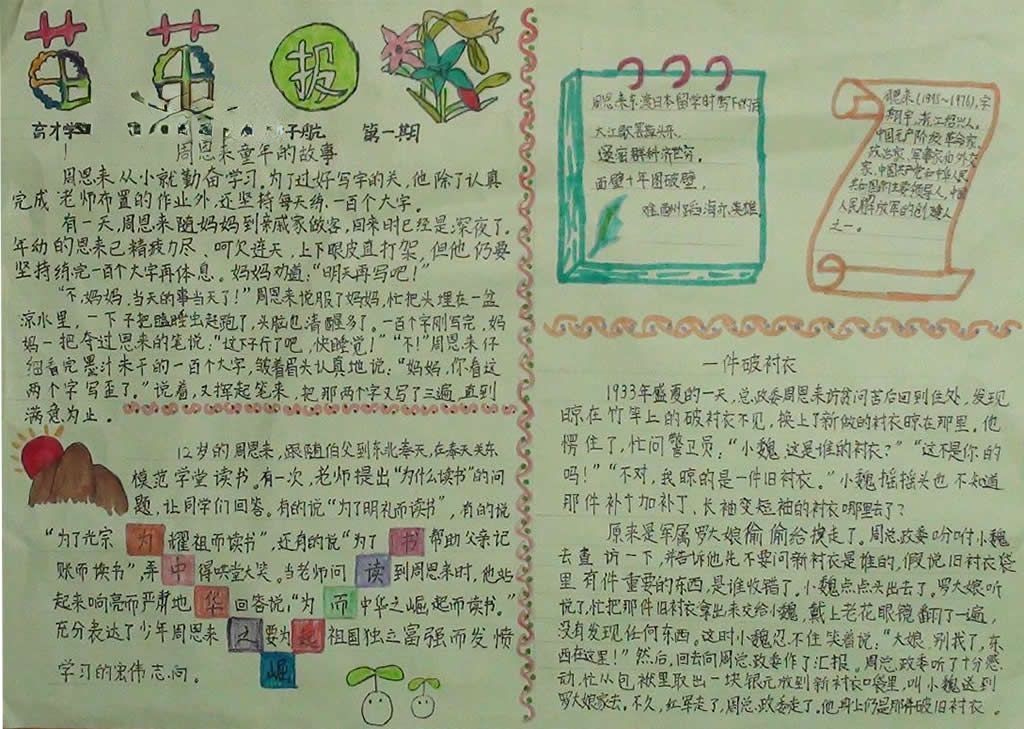 英英报
育才学
子航
第一期
周恩来童年的故事
周恩来从小就勤奋学习。为了过好写字的关,他除了认真
完成老师布置的作业外,还坚持每天练一百个大字。
有一天,周恩来随妈妈到亲戚家做客,回来时已经是深夜了。
年幼的恩来已精疲力尽、呵欠连天,上下眼皮直打架,但他仍要
坚持练完一百个大字再休息。妈妈劝道:“明天再写吧!”
“不,妈妈,当天的事当天了!”周恩来说服了妈妈,忙把头埋在一盆
凉水里,一下子把瞌睡虫赶跑了,头脑也清醒多了。一百个字刚写完,妈
妈一把夺过恩来的笔说:“这下子行了吧,快睡觉!”“不!”周恩来仔
细看完墨汁未干的一百个大字,皱着眉头认真地说:“妈妈,你看这
两个字写歪了。”说着,又挥起笔来,把那两个字又写了三遍,直到
满意为止。
12岁的周恩来,跟随伯父到东北奉天,在奉天关东
模范学堂读书。有一次,老师提出“为什么读书”的问
题,让同学们回答。有的说“为了明礼而读书”,有的说
“为了光宗为耀祖而读书”,还有的说“为了书帮助父亲记
账而读书”,弄中得哄堂大笑。当老师问读到周恩来时,他站
起来响亮而严肃地华回答说:“为而中华之崛起而读书。”
充分表达了少年周恩来之要为起祖国独立富强而发愤
学习的宏伟志向。崛
周恩来东渡日本留学时写下的诗
大江歌罢掉头东,
邃密群科济世穷。
面壁十年图破壁,
难酬蹈海亦英雄。
周恩来(1898~1976),字
翔宇,浙江绍兴人。
中国无产阶级革命家、
政治家、军事家和外交
家,中国共产党和中华人民
共和国的主要领导人,中国
人民解放军的创建人
之一。
一件破衬衣
1933年盛夏的一天,总政委周恩来访贫问苦后回到住处,发现
晾在竹竿上的破衬衣不见,换上了新做的衬衣晾在那里。他
愣住了,忙问警卫员:“小魏,这是谁的衬衣?”“这不是你的
吗!”“不对,我晾的是一件旧衬衣。”小魏摇摇头也不知道
那件补丁加补丁、长袖变短袖的衬衣哪里去了?
原来是军属罗大娘偷偷给换走了。周总政委吩咐小魏
去查访一下,并告诉他先不要问新衬衣是谁的,假说旧衬衣袋
里有件重要的东西,是谁收错了。小魏点点头出去了。罗大娘听
说了,忙把那件旧衬衣拿出来交给小魏,戴上老花眼镜翻了一遍,
没有发现任何东西。这时小魏忍不住笑着说:“大娘,别找了,东
西在这里!”然后,回去向周总政委作了汇报。周总政委听了十分感
动,忙从包袱里取出一块银元放到新衬衣口袋里,叫小魏送到
罗大娘家去。不久,红军走了,周总政委走了。他身上仍是那件破旧衬衣。